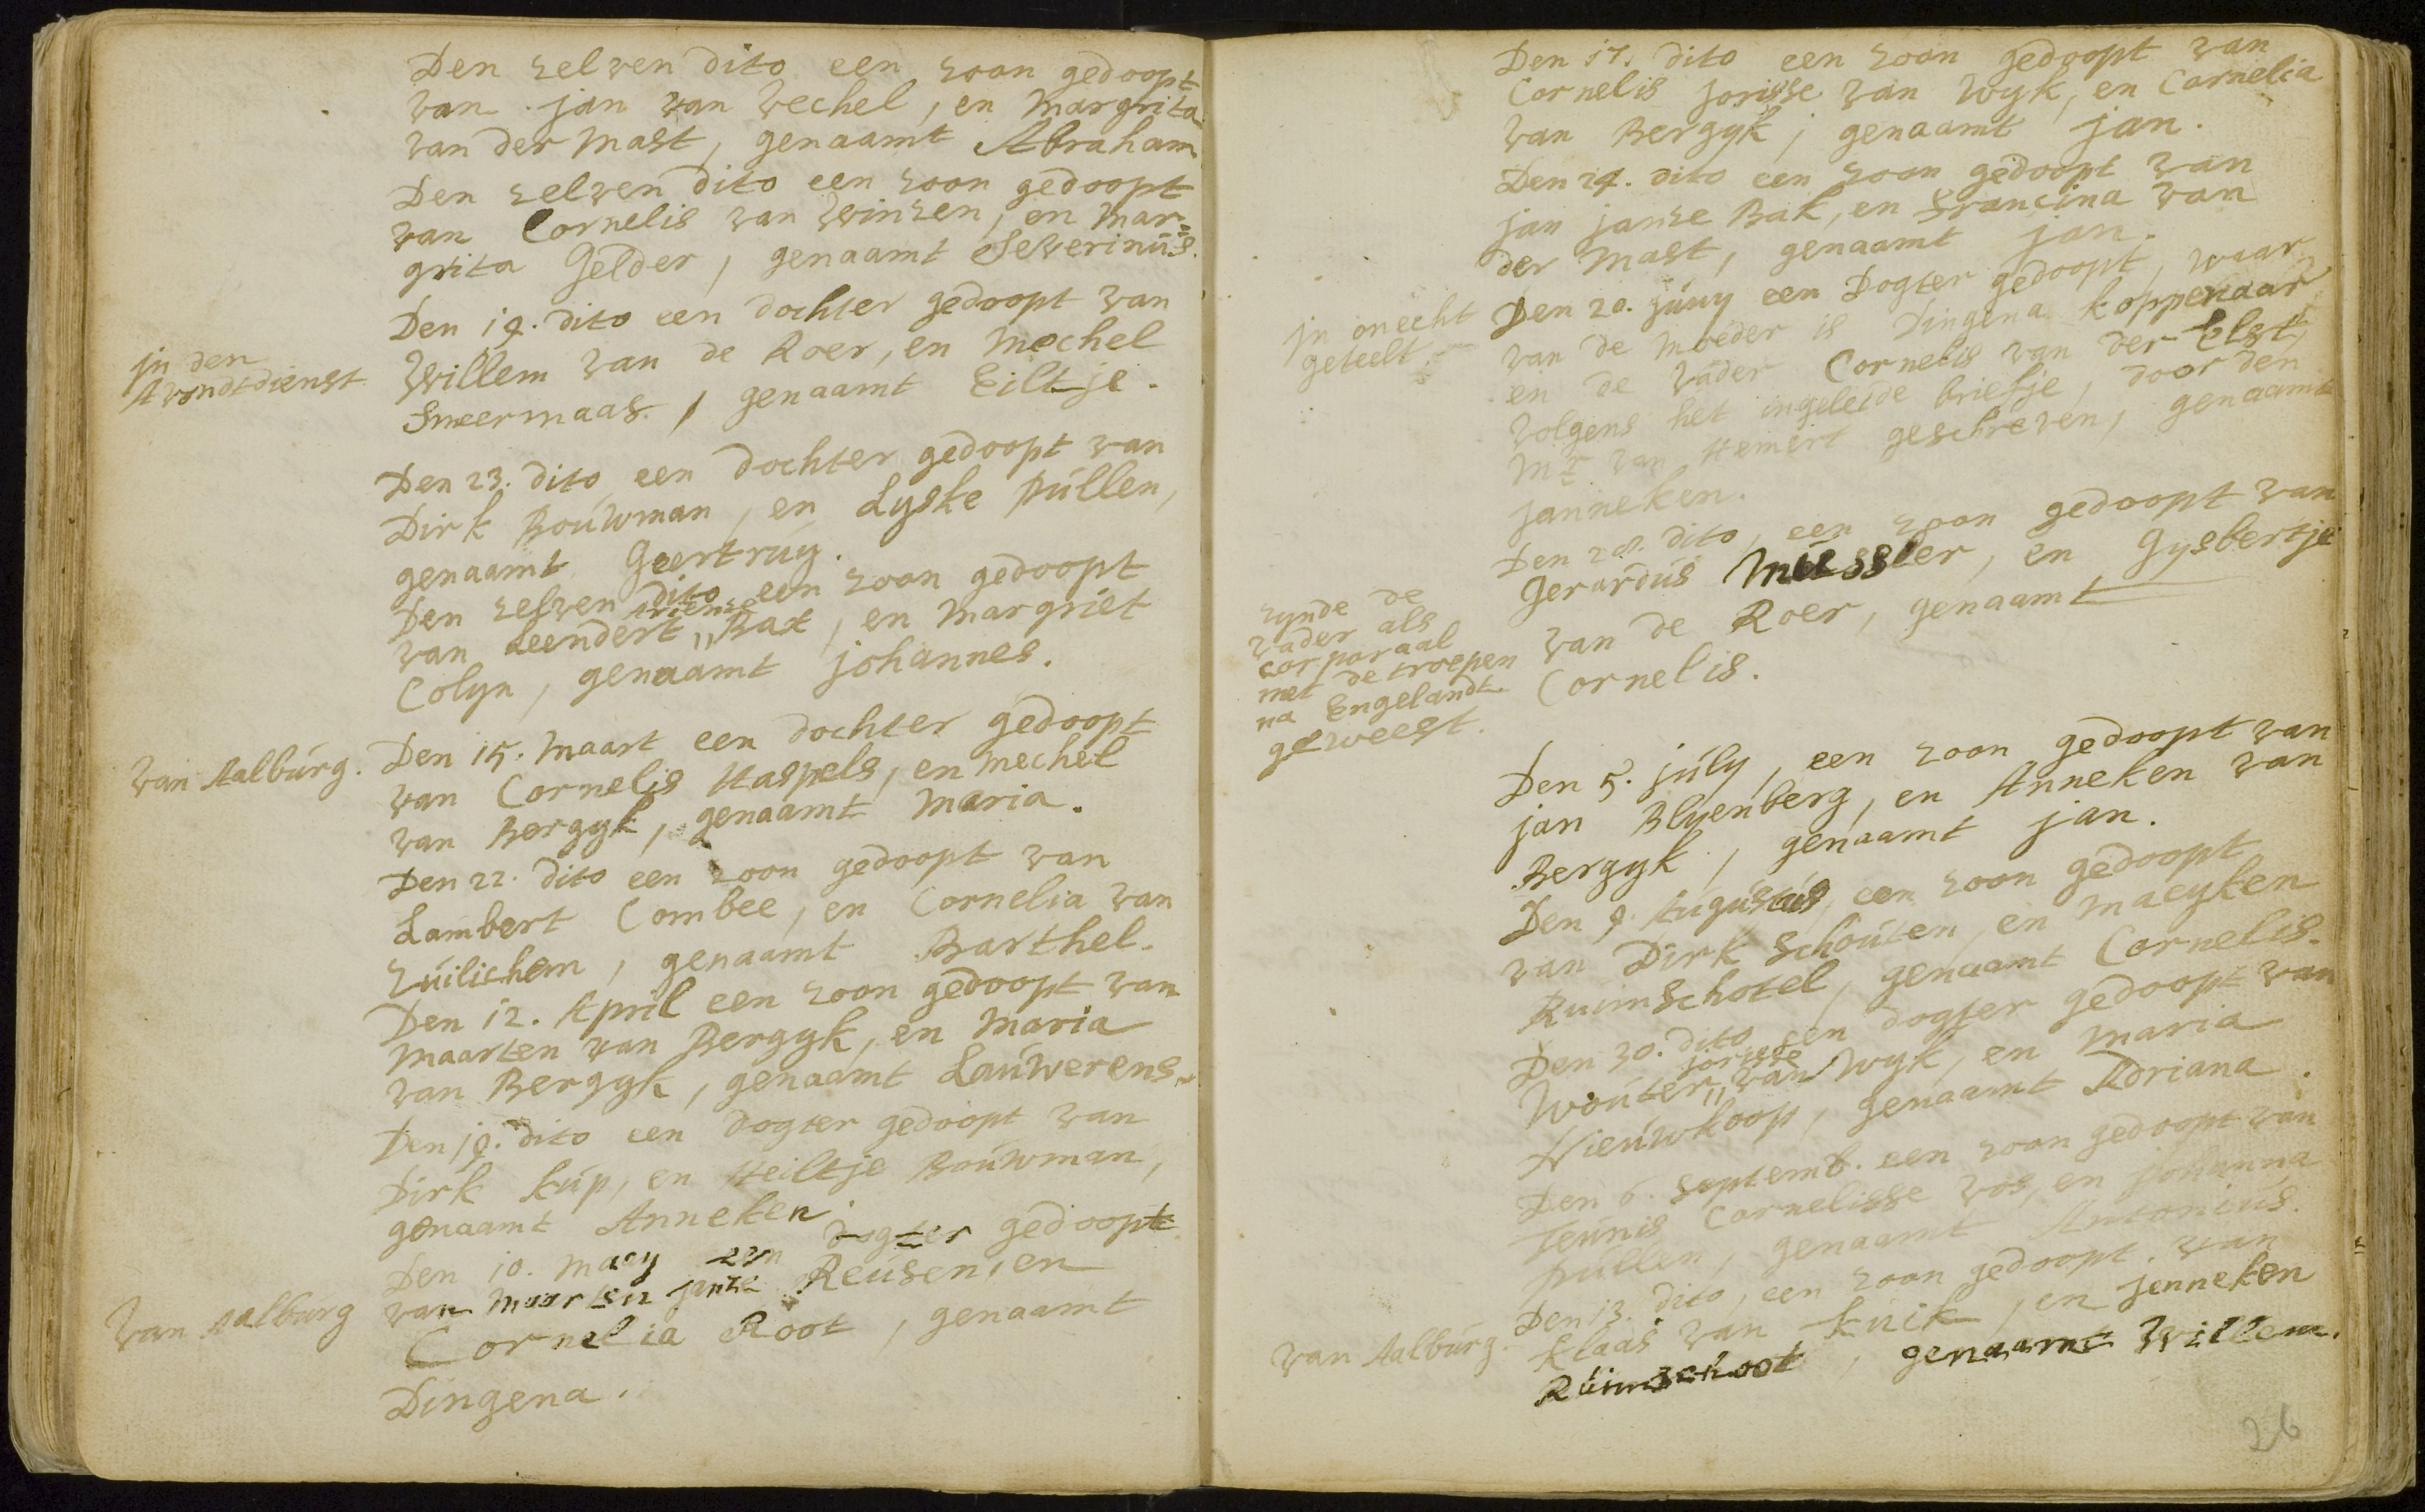 Den zelven dito een zoon gedoopt
van jan van Vechel, en Margrita
van der Mast, genaamt Abraham
Den zelven dito een zoon gedoopt
van Cornelis van Winzen, en Mar=
grita Gelder, genaamt Severinús.
Den 19. dito een dochter gedoopt van
in den
Avondtdienst
Willem van de Roer, en Mechel
Smeermaas, genaamt Eiltje.
Den 23. dito een dochter gedoopt van
Dirk Boúwman, en Lyske púllen,
genaamt Geertrúy.
Den zelven dito een zoon gedoopt
van Leendert Ariense Bax, en Margriet
Colyn, genaamt johannes.
van Aalbúrg.
Den 15. Maart een dochter gedoopt
van Cornelis Haspels, en Mechel
van Bergyk, genaamt Maria.
Den 22. dito een zoon gedoopt van
Lambert Combee, en Cornelia van
Zúilichem, genaamt Barthel.
Den 12. April een zoon gedoopt van
Maarten van Bergyk, en Maria
van Bergyk, genaamt Laúwerens.
Den 19. dito een dogter gedoopt van
Dirk kúp, en Heiltje Boúwman,
genaamt Anneken.
Den 10. Maey een dogter gedoopt
van Aalbúrg
van Maarten janze Reúsen, en
Cornelia Root, genaamt
Dingena.
Den 17. dito een zoon gedoopt van
Cornelis jorisse van Wyk, en Cornelia
van Bergyk, genaamt jan.
Den 24. dito een zoon gedoopt van
jan janze Bak, en Francina van
der Mast, genaamt jan.
in onecht
geteelt.
Den 20. júny een Dogter gedoopt, waar
van de Moeder is Dingena koppenaar
en de Vader Cornelis van der Elst,
volgens het ingeleide briefje, door den
Mr van Hemert geschreven, genaamt
janneken.
Den 28. dito, een zoon gedoopt van
Gerardús Mússler, en Gysbertje
van de Roer, genaamt
Cornelis.
zynde de
vader als
corporaal
met de troepen
na Engelandt
geweest.
Den 5. júly, een zoon gedoopt van
jan Blyenberg, en Anneken van
Bergyk, genaamt jan.
Den 9. Aúgústús, een zoon gedoopt
van Dirk Schoúten, en Maeyken
Ruimschotel, genaamt Cornelis.
Den 30. dito een dogter gedoopt van
Woúter jorisse van Wyk, en Maria
Nieúwkoop, genaamt Adriana.
Den 6. Septemb. een zoon gedoopt van
Teúnis Cornelisse vos, en johanna
púllen, genaamt Antoniús.
Den 13. dito, een zoon gedoopt van
van Aalbúrg.
klaas van kuik, en jenneken
Rúimschoot, genaamt Willem.
26